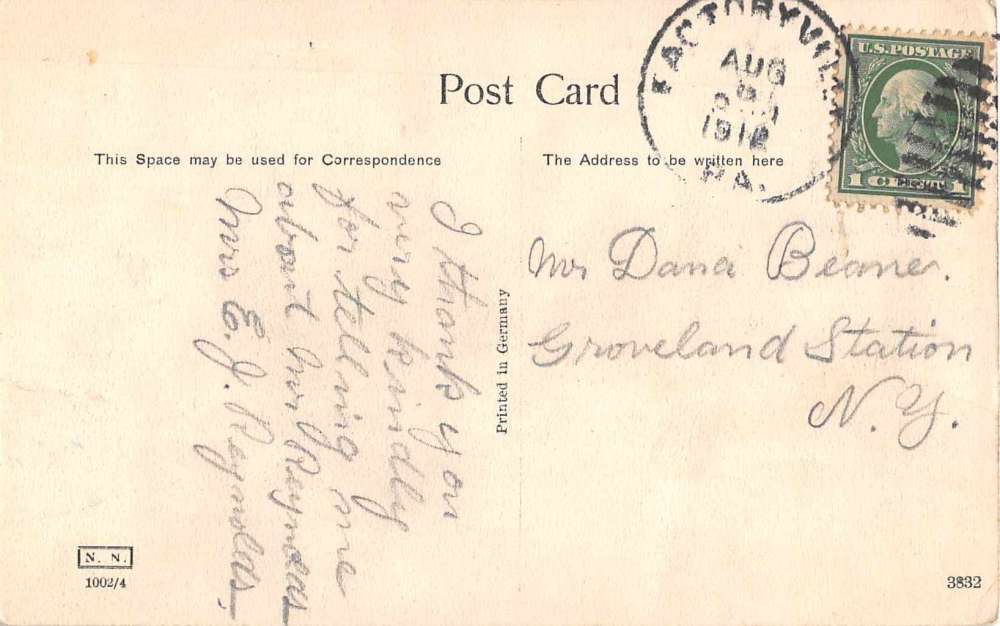 Post Card
FACTORYVILLE
AUG
1912
PA.
U.S. POSTAGE
1 CENT 1
This Space may be used for Correspondence
The Address to be written here
I thank you
very kindly
for telling me
about Mr Reynolds
Mrs E. J. Reynolds
Printed in Germany
Mr Dana Beaner.
Groveland Station
N. Y.
N. N.
1002/4
3832